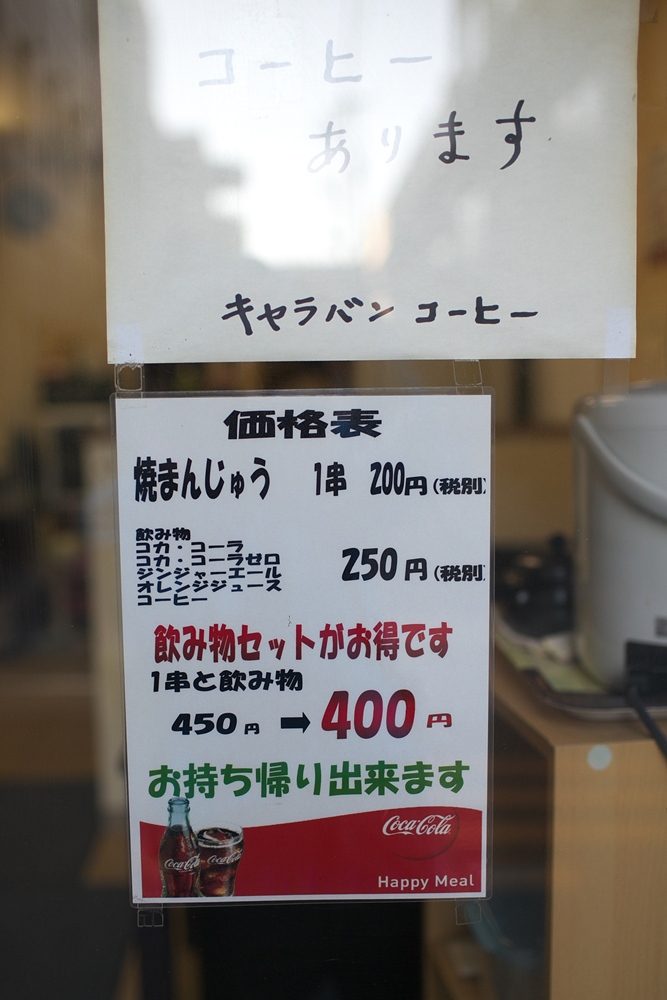 コーヒー
あります
キャラバン コーヒー
価格表
焼まんじゅう 1串 200円(税別)
飲み物
コカ・コーラ
コカ・コーラゼロ
ジンジャーエール
オレンジジュース
コーヒー
250円(税別)
飲み物セットがお得です
1串と飲み物
450円 ➡ 400円
お持ち帰り出来ます
Coca-Cola
Coca-Cola
Coca-Cola
Happy Meal